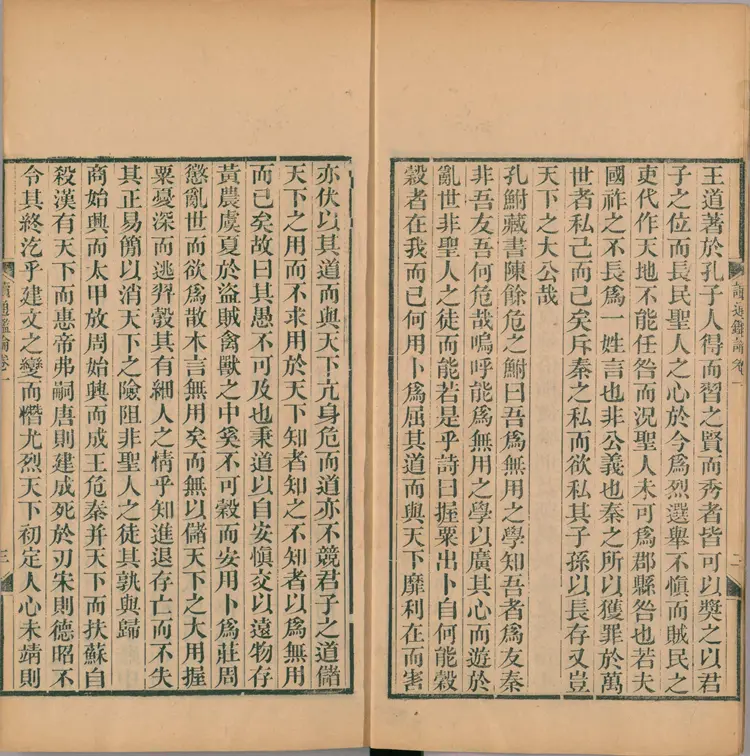 王道著於孔子人得而習之賢而秀者皆可以奬之以君
子之位而長民聖人之心於今爲烈選舉不愼而賊民之
吏代作天地不能任咎而況聖人未可爲郡縣咎也若夫
國祚之不長爲一姓言也非公義也秦之所以獲罪於萬
世者私己而已矣斥秦之私而欲私其子孫以長存又豈
天下之大公哉
孔鮒藏書陳餘危之鮒曰吾爲無用之學知吾者爲友秦
非吾友吾何危哉嗚呼能爲無用之學以廣其心而遊於
亂世非聖人之徒而能若是乎詩曰握粟出卜自何能穀
穀者在我而已何用卜爲屈其道而與天下靡利在而害
讀通鑑論卷一
二
亦伏以其道而與天下亢身危而道亦不競君子之道儲
天下之用而不求用於天下知者知之不知者以爲無用
而已矣故曰其愚不可及也秉道以自安愼交以遠物存
黃農虞夏於盜賊禽獸之中奚不可穀而安用卜爲莊周
懲亂世而欲爲散木言無用矣而無以儲天下之大用握
粟憂深而逃羿彀其有細人之情乎知進退存亡而不失
其正易簡以消天下之險阻非聖人之徒其孰與歸
商始興而太甲放周始興而成王危秦并天下而扶蘇自
殺漢有天下而惠帝弗嗣唐則建成死於刃宋則德昭不
令其終汔乎建文之變而憯尤烈天下初定人心未靖則
讀通鑑論卷一
三